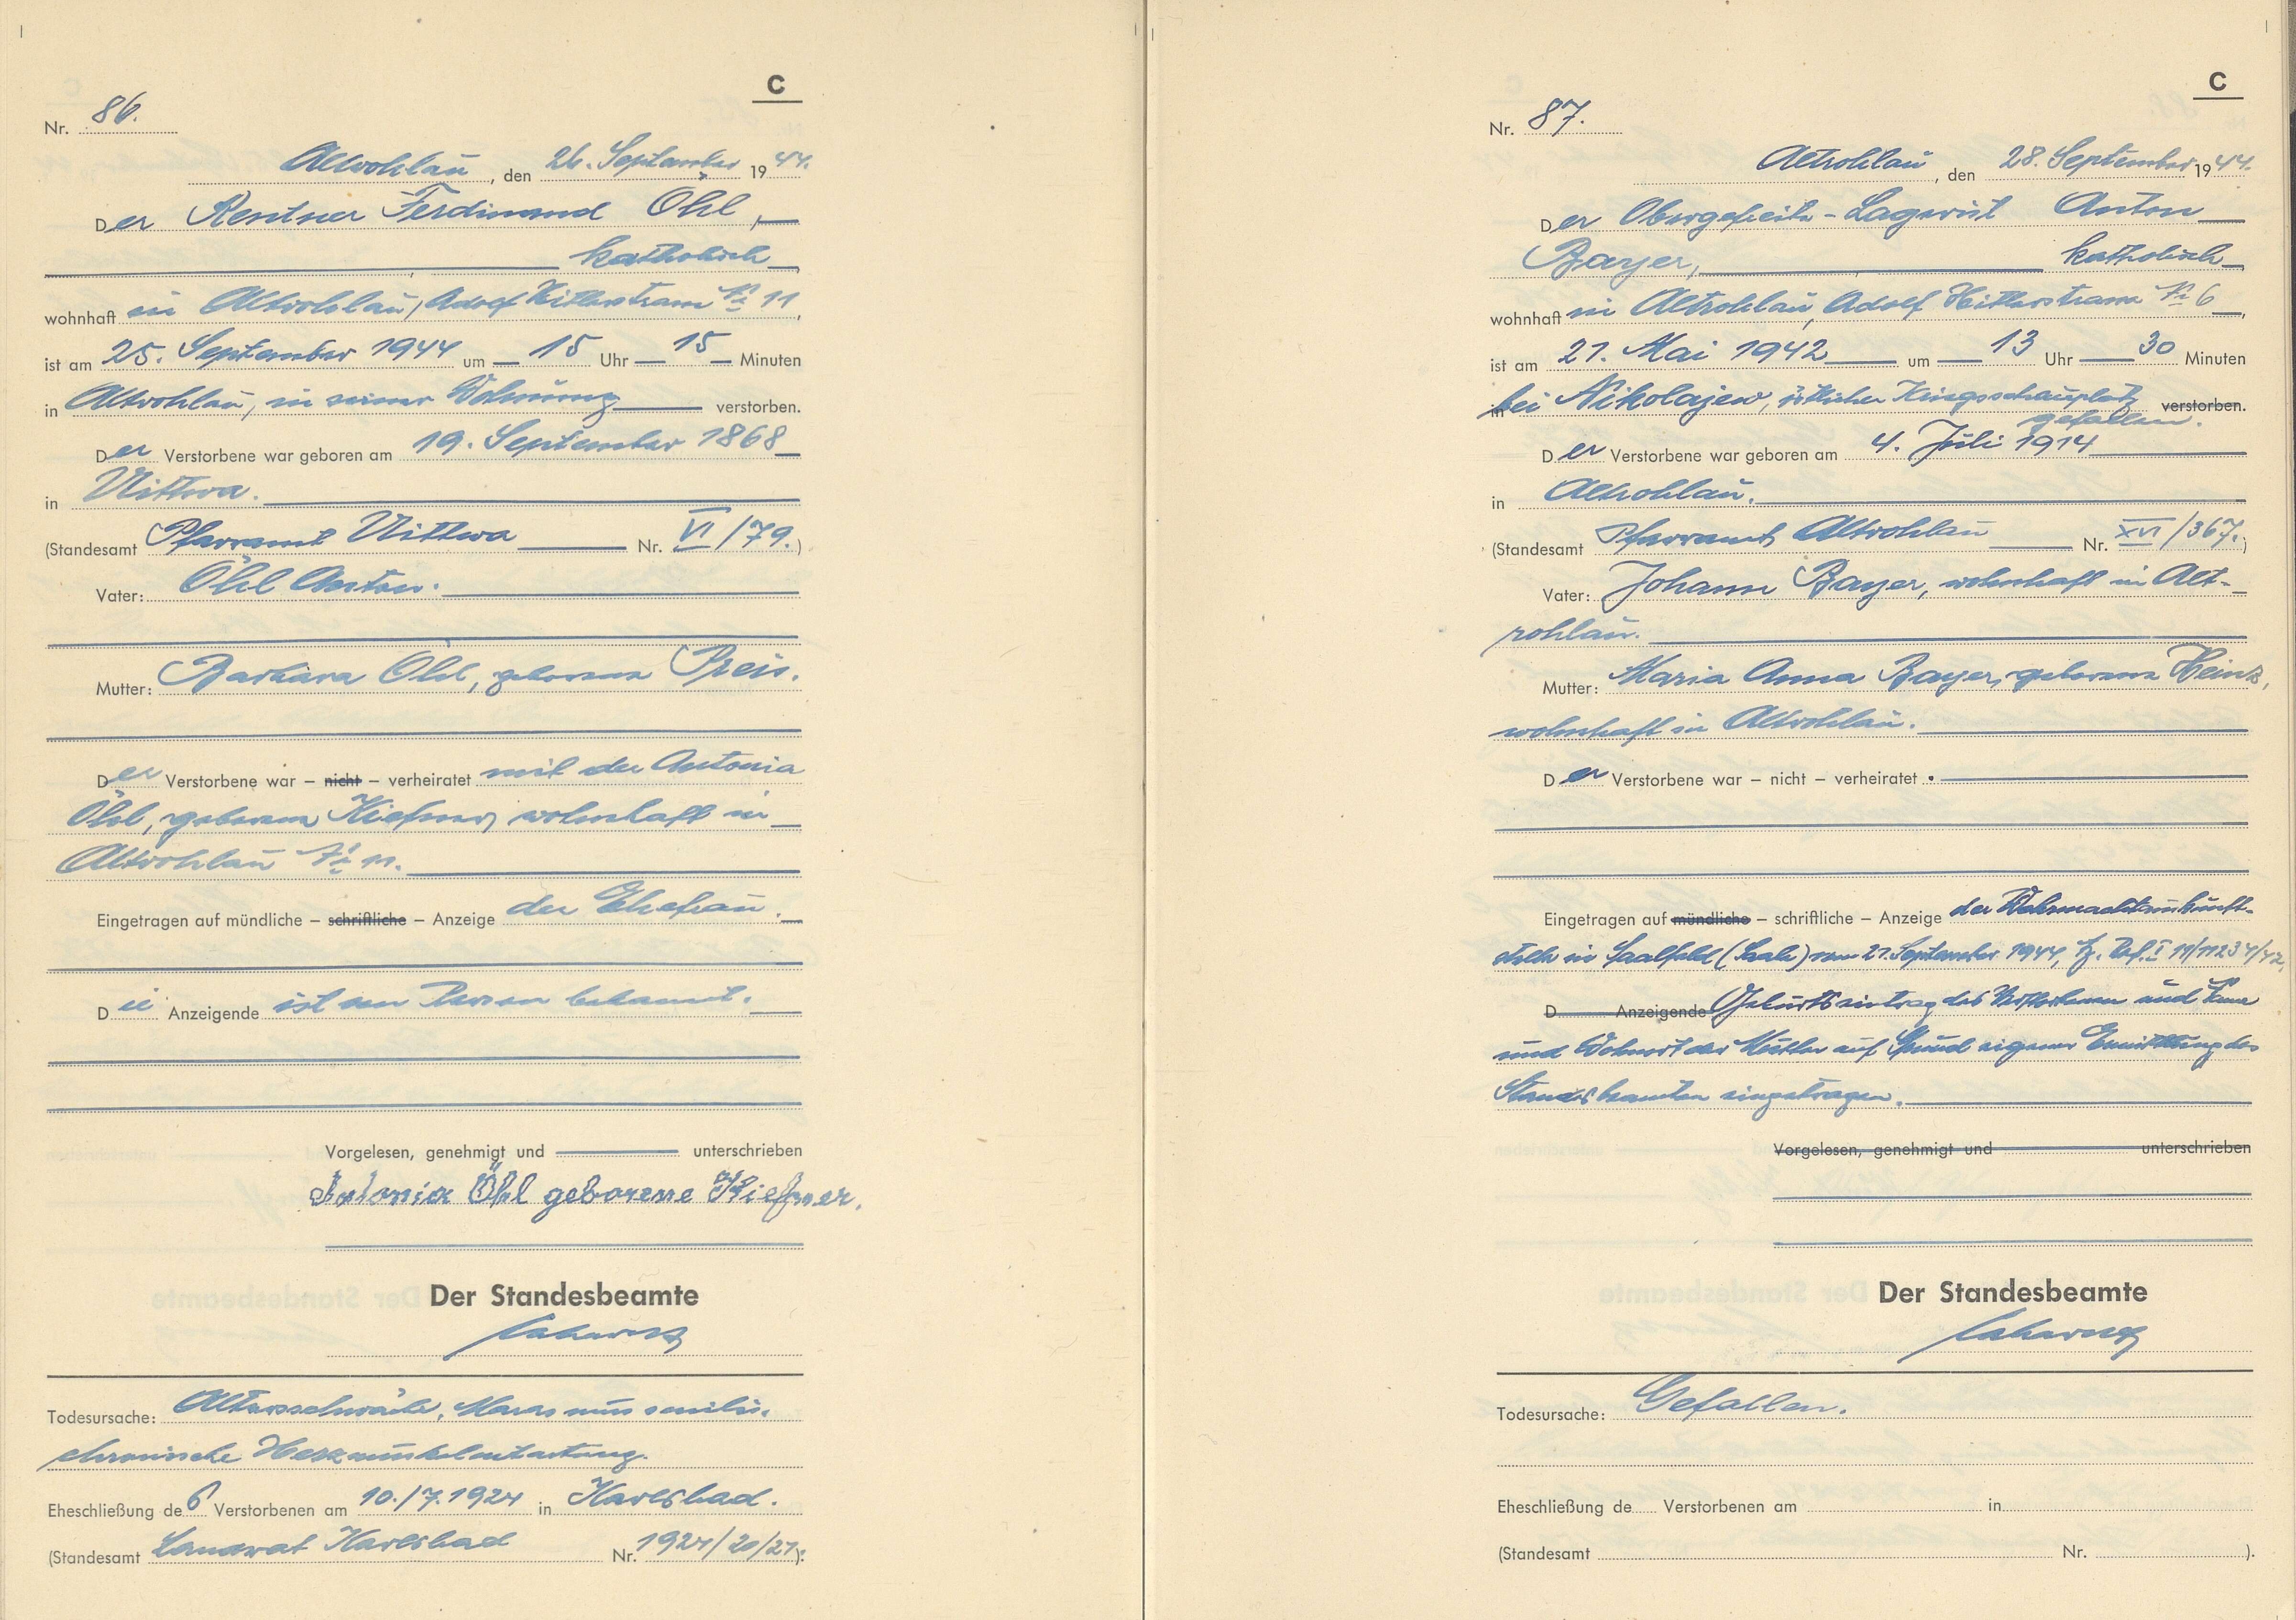 C
Nr. 86.
Altrohlau, den 26. September 1944.
Der Rentner Ferdinand Öhl,
katholisch
wohnhaft in Altrohlau, Adolf Hitlerstrasse Nr 11,
ist am 25. September 1944 um 15 Uhr 15 Minuten
in Altrohlau, in seiner Wohnung verstorben.
Der Verstorbene war geboren am 19. September 1868
in Uittwa.
(Standesamt Pfarramt Uittwa Nr. VI/79.)
Vater: Öhl Anton.
Mutter: Barbara Öhl, geborene Preis.
Der Verstorbene war – nicht – verheiratet mit der Antonia
Öhl, geborene Kiefner, wohnhaft in
Altrohlau Nr 11.
Eingetragen auf mündliche – schriftliche – Anzeige der Ehefrau.
Die Anzeigende ist von Person bekannt.
Vorgelesen, genehmigt und unterschrieben
Antonia Öhl geborene Kiefner.
Der Standesbeamte
Todesursache: Altersschwäche, Marasmus senilis.
chronische Herzmuskelentartung.
Eheschließung des Verstorbenen am 10./7.1924 in Karlsbad.
(Standesamt Landrat Karlsbad Nr. 1924/20/21).
C
Nr. 87.
Altrohlau, den 28. September 1944.
Der Obergefreite - Lagerist Anton
Bayer, katholisch
wohnhaft in Altrohlau, Adolf Hitlerstrasse Nr 6,
ist am 21. Mai 1942 um 13 Uhr 30 Minuten
in bei Nikolajew, östlicher Kriegsschauplatz verstorben.
gefallen.
Der Verstorbene war geboren am 4. Juli 1914
in Altrohlau.
(Standesamt Pfarramt Altrohlau Nr. XVI/367.)
Vater: Johann Bayer, wohnhaft in Alt-
rohlau.
Mutter: Maria Anna Bayer, geborene Heinz,
wohnhaft in Altrohlau.
Der Verstorbene war – nicht – verheiratet.
Eingetragen auf mündliche – schriftliche – Anzeige der Wehrmachtauskunft-
stelle in Saalfeld (Saale) vom 21. September 1944, Ref. I 11/11234/42,
D Anzeigende Geburtseintrag des Verstorbenen und Name
und Wohnort der Mutter auf Grund eigener Ermittlung des
Standesbeamten eingetragen.
Vorgelesen, genehmigt und unterschrieben
Der Standesbeamte
Todesursache: Gefallen.
Eheschließung de Verstorbenen am in
(Standesamt Nr. ).